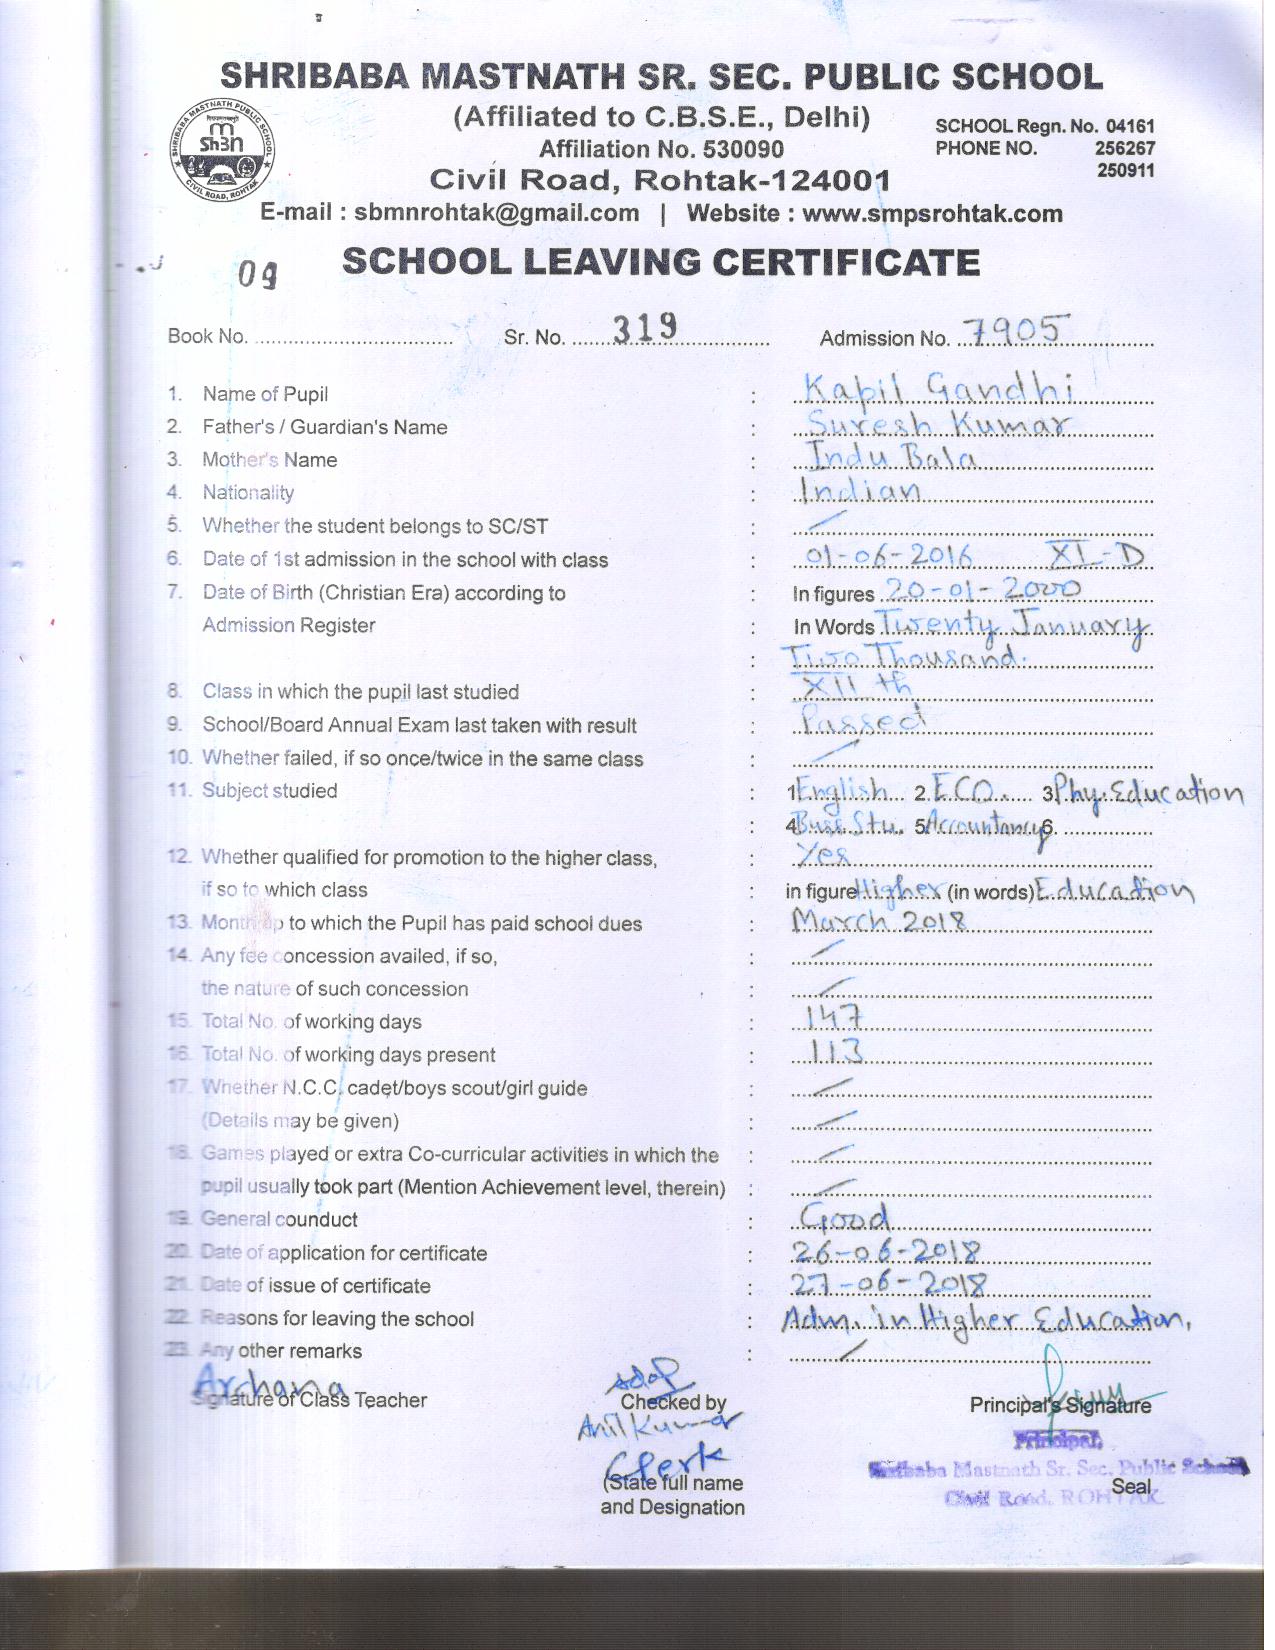 SHRIBABA MASTNATH SR. SEC. PUBLIC SCHOOL
(Affiliated to C.B.S.E., Delhi)
Affiliation No. 530090
Civil Road, Rohtak-124001
SCHOOL Regn. No. 04161
PHONE NO. 256267
250911
E-mail : sbmnrohtak@gmail.com | Website : www.smpsrohtak.com
SHRIBABA MASTNATH PUBLIC SCHOOL
CIVIL ROAD, ROHTAK
SCHOOL LEAVING CERTIFICATE
09
Book No. Sr. No. 319 Admission No. 7905
1. Name of Pupil : Kapil Gandhi
2. Father's / Guardian's Name : Suresh Kumar
3. Mother's Name : Indu Bala
4. Nationality : Indian
5. Whether the student belongs to SC/ST :
6. Date of 1st admission in the school with class : 01-06-2016 XI-D
7. Date of Birth (Christian Era) according to : In figures 20-01-2000
Admission Register : In Words Twenty January
: Two Thousand.
8. Class in which the pupil last studied : XII th
9. School/Board Annual Exam last taken with result : Passed
10. Whether failed, if so once/twice in the same class :
11. Subject studied : 1 English 2. ECO. 3 Phy. Education
4 Buss. Stu. 5 Accountancy 6.
12. Whether qualified for promotion to the higher class, : Yes
if so to which class : in figure Higher (in words) Education
13. Month up to which the Pupil has paid school dues : March 2018
14. Any fee concession availed, if so, :
the nature of such concession :
15. Total No. of working days : 147
16. Total No. of working days present : 113
17. Whether N.C.C. cadet/boys scout/girl guide :
(Details may be given) :
18. Games played or extra Co-curricular activities in which the :
pupil usually took part (Mention Achievement level, therein) :
19. General counduct : Good
20. Date of application for certificate : 26-06-2018
21. Date of issue of certificate : 27-06-2018
22. Reasons for leaving the school : Adm. in Higher Education,
23. Any other remarks :
Archana
Signature of Class Teacher Checked by Principal's Signature
Anil Kumar
Clerk
(State full name
and Designation
Principal,
Shribaba Mastnath Sr. Sec. Public School
Civil Road, ROHTAK
Seal